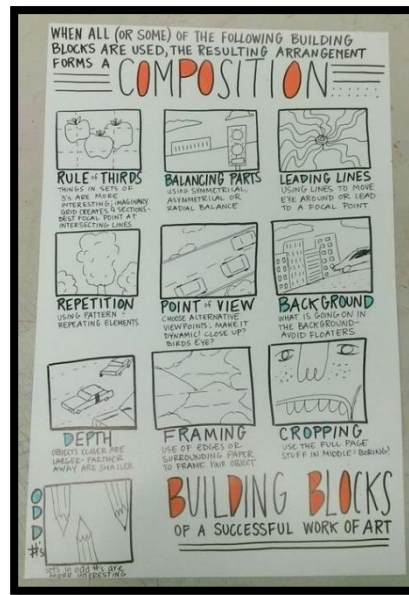 WHEN ALL (OR SOME) OF THE FOLLOWING BUILDING
BLOCKS ARE USED, THE RESULTING ARRANGEMENT
FORMS A COMPOSITION
RULE OF THIRDS
THINGS IN SETS OF
3'S ARE MORE
INTERESTING; IMAGINARY
GRID CREATES 9 SECTIONS-
BEST FOCAL POINT AT
INTERSECTING LINES
BALANCING PARTS
USING SYMMETRICAL,
ASYMMETRICAL OR
RADIAL BALANCE
LEADING LINES
USING LINES TO MOVE
EYE AROUND OR LEAD
TO A FOCAL POINT
REPETITION
USING PATTERN +
REPEATING ELEMENTS
POINT OF VIEW
CHOOSE ALTERNATIVE
VIEWPOINTS. MAKE IT
DYNAMIC! CLOSE UP?
BIRDS EYE?
BACKGROUND
WHAT IS GOING ON IN
THE BACKGROUND-
AVOID FLOATERS
DEPTH
OBJECTS CLOSER ARE
LARGER - FARTHER
AWAY ARE SMALLER
FRAMING
USE OF EDGES OR
SURROUNDING PAPER
TO FRAME YOUR OBJECT
CROPPING
USE THE FULL PAGE
STUFF IN MIDDLE = BORING!
ODD #'s
sets in odd #'s are
MORE INTERESTING
BUILDING BLOCKS
OF A SUCCESSFUL WORK OF ART